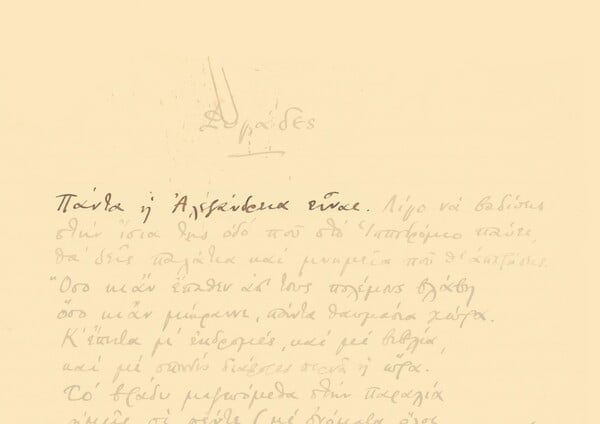 Φυγάδες
Πάντα ἡ Ἀλεξάνδρεια εἶναι. Λίγο νὰ βαδίσεις
στὴν ἴσια της ὁδὸ ποῦ στὸ Ἱπποδρόμιο παύει,
θὰ δεῖς παλάτια καὶ μνημεῖα ποῦ θ' ἀπορήσεις.
Ὅσο κι ἂν ἔπαθεν ἀπ' τοὺς πολέμους βλάβη
ὅσο κι ἂν μίκραινε, πάντα θαυμάσια χώρα.
Κ' ἔπειτα μ' ἐκδρομές, καὶ μὲ βιβλία,
καὶ μὲ σπουδὲς διάφορες περνᾶ ἡ ὥρα.
Τὸ βράδυ μαζευόμεθα στὴν παραλία
ἡμεῖς οἱ πέντε (μὲ ὀνόματα ὅλοι